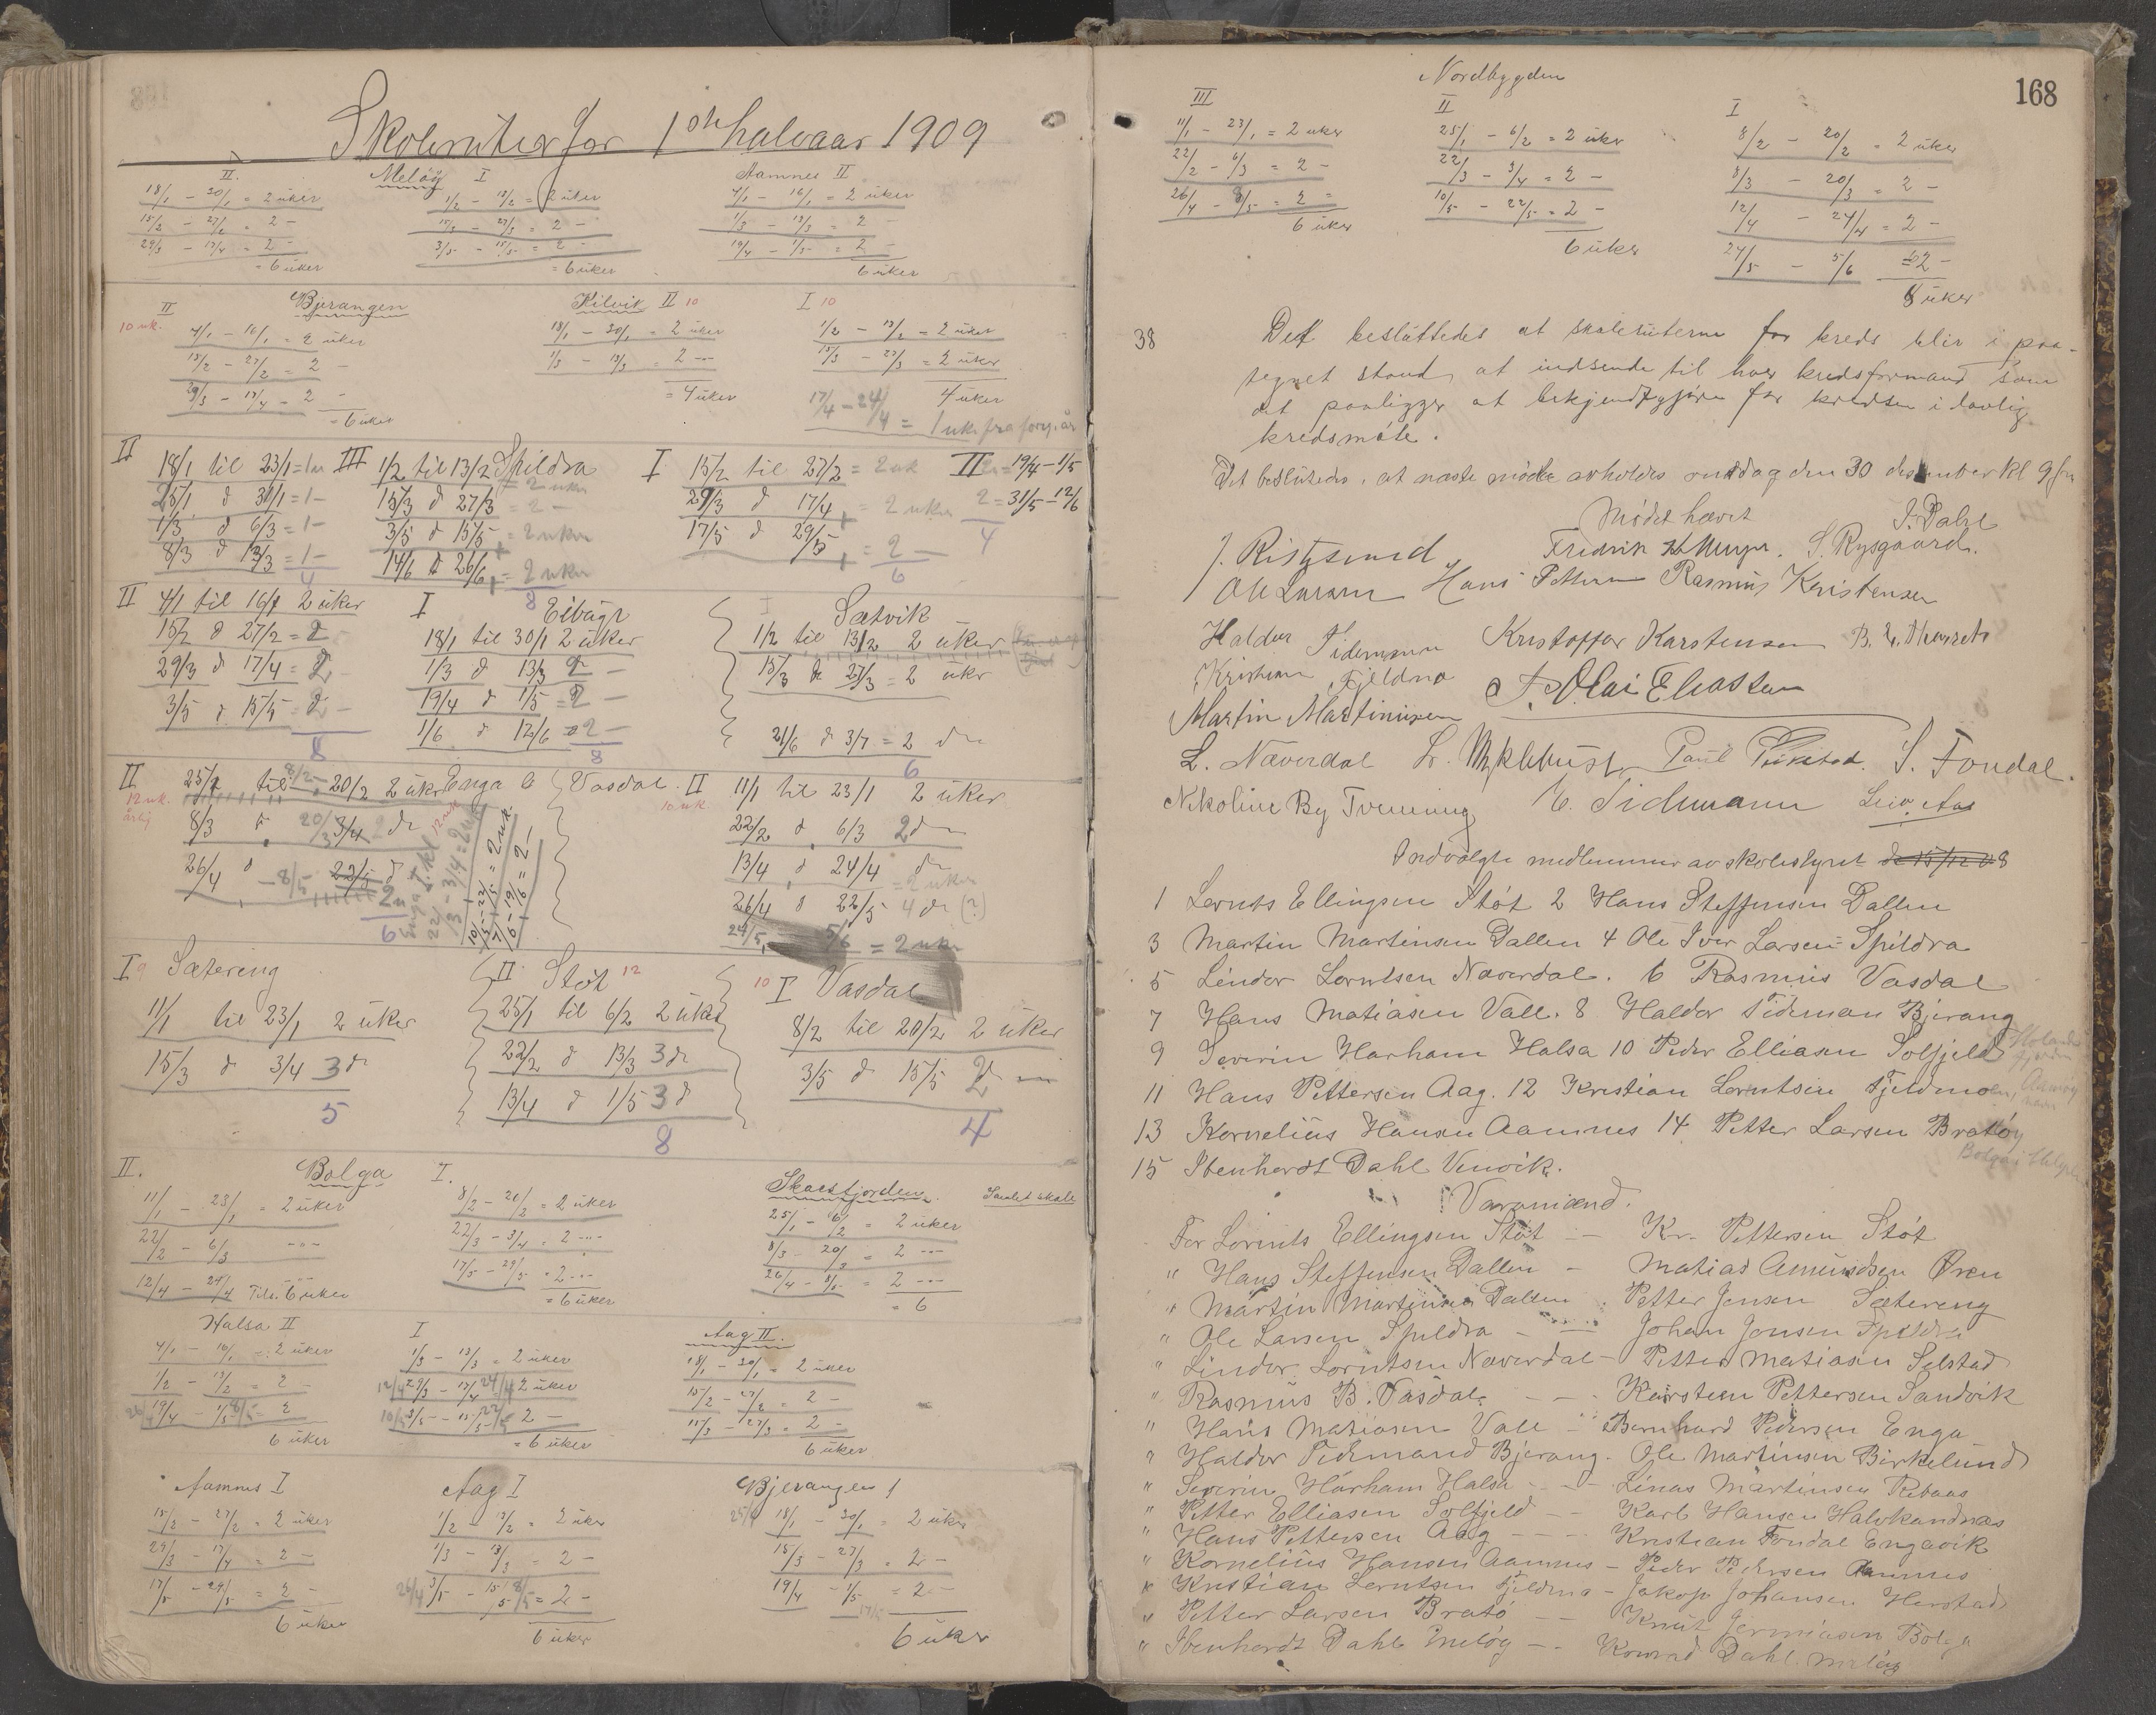 Skoleruter for 1ste halvaar 1909
II. Meløy I Aamnes II
18/1 - 30/1 = 2 uker 1/2 - 13/2 = 2 uker 4/1 - 16/1 = 2 uker
15/2 - 27/2 = 2 - 15/3 - 27/3 = 2 - 1/3 - 13/3 = 2
29/3 - 17/4 = 2 - 3/5 - 15/5 = 2 - 19/4 - 1/5 = 2 -
= 6 uker = 6 uker 6 uker
II Bjerangen Kilvik II 10 I 10
10 uk. 4/1 - 16/1 = 2 uker 18/1 - 30/1 = 2 uker 1/2 - 13/2 = 2 uker
15/2 - 27/2 = 2 - 1/3 - 13/3 = 2 - 15/3 - 27/3 = 2 uker
29/3 - 17/4 - 2 - = 4 uker 4 uker
= 6 uker 17/4 - 24/4 = 1 uke fra forr. år
II 18/1 til 23/1 = 1 u III 1/2 til 13/2 Spildra I 15/2 til 27/2 = 2 uk II 2 = 19/4 - 1/5
25/1 d 30/1 = 1 - 15/3 d 27/3 = 2 - 29/3 d 17/4 = 2 uker 2 = 31/5 - 12/6
1/3 d 6/3 = 1 - 3/5 d 15/5 = 2 uker 17/5 d 29/5 = 2 - 4
8/3 d 13/3 = 1 - 14/6 d 26/6 = 2 uker 6
4 8
II 4/1 til 16/1 2 uker I Eibagr Sætvik
15/2 d 27/2 = 2 18/1 til 30/1 2 uker 1/2 til 13/2 2 uker
29/3 d 17/4 = 2 1/3 d 13/3 2 - 15/3 d 27/3 = 2 uker
3/5 d 15/5 - 2 - 19/4 d 1/5 = 2 -
8 1/6 d 12/6 = 2 - 21/6 d 3/7 = 2 d
8 6
II 25/1 til 8/2 - 20/2 2 uker Enga Vasdal II 11/1 til 23/1 2 uker
12 uk. årlig 8/3 20/3 3/4 d 10 uk. 22/2 d 6/3 2 d
26/4 d - 8/5 22/5 d 13/4 d 24/4 d = 2 uker
2 u 26/4 d 22/5 4 d (?)
6 24/5 5/6 = 2 uker
Enga I. kl 12 uk
22/3 - 3/4 = 2 uk
10/5 - 22/5 = 2 uk.
7/6 - 19/6 = 2 -
I 9 Sætereng II Støt 12 10 I Vasdal
11/1 til 23/1 2 uker 25/1 til 6/2 2 uker 8/2 til 20/2 2 uker
15/3 d 3/4 3 d 22/2 d 13/3 3 d 3/5 d 15/5 2
5 13/4 d 1/5 3 d 4
8
II. Bolga I. Skaesfjorden. Samlet skole
11/1 - 23/1 = 2 uker 8/2 - 20/2 = 2 uker 25/1 - 6/2 = 2 uker
22/2 - 6/3 - 22/3 - 3/4 = 2 - 8/3 - 20/3 = 2 -
12/4 - 24/4 Tils. 6 uker 17/5 - 29/5 = 2 - 26/4 - 8/5 = 2 -
= 6 uker = 6
Halsa II I Aag II.
4/1 - 16/1 = 2 uker 1/3 - 13/3 = 2 uker 18/1 - 30/1 = 2 uker
1/2 - 13/2 = 2 - 12/4 29/3 - 17/4 24/4 2 uker 15/2 - 27/2 = 2 -
26/4 19/4 - 1/5 8/5 = 2 10/5 3/5 - 15/5 22/5 = 2 - 15/3 - 27/3 = 2 -
6 uker = 6 uker 6 uker
Aamnes I Aag I Bjerangen I
15/2 - 27/2 = 2 uker 1/2 - 13/2 = 2 uker 25/1 18/1 - 30/1 = 2 uker
29/3 - 17/4 = 2 - 1/3 - 13/3 = 2 - 15/3 - 27/3 = 2 -
17/5 - 29/5 = 2 - 26/4 3/5 - 15/5 8/5 = 2 - 19/4 - 1/5 = 2
6 uker 6 uker 17/5
6 uker
168
Nordbygden
III II I
11/1 - 23/1 = 2 uker 25/1 - 6/2 = 2 uker 8/2 - 20/2 = 2 uker
22/2 - 6/3 = 2 - 22/3 - 3/4 = 2 - 8/3 - 20/3 = 2 -
26/4 - 8/5 = 2 = 10/5 - 22/5 = 2 - 12/4 - 24/4 = 2 -
6 uker 6 uker 24/5 - 5/6 = 2 -
8 uker
38 Det besluttedes at skoleruterne for kreds blir i paa-
tegnet stand, at indsende til hver kredsformand som
det paaligger at bekjendtgjøre for kredsen i lovlig
kredsmøte.
Det beslutedes, at næste møde avholdes onsdag den 30 desember kl 9 fm
Mødet hævet J. Dahl
J. Ristgsund Fredrik Meyer. S. Rysgaard.
Ole Larsen Hans Pettersen Rasmus Kristensen
Haldor Tidemann Kristoffer Karstensen
Kristian Fjeldmo J. Olai Eliassen
Martin Martinusen
L. Næverdal Paul S. Fondal.
Nikoline By Tvenning E. Tidemann
Indvalgte medlemmer av skolestyret d 15/12 08
1 Lornts Ellingsen Støt 2 Hans Steffensen Dallen
3 Martin Martinsen Dallen 4 Ole Iver Larsen Spildra
5 Lindor Lorntsen Næverdal. 6 Rasmus Vasdal
7 Hans Matiasen Vall. 8 Haldor Tideman Bjerang
9 Severin Harham Halsa 10 Peder Elliasen Solfjeld
11 Hans Pettersen Aag. 12 Kristian Lorntsen Fjeldmo
13 Kornelius Hansen Aamnes 14 Petter Larsen Bratøy
15 Ibenhardt Dahl Unvik.
Varamænd.
For Lornts Ellingsen Støt - Kr. Pettersen Støt
" Hans Steffensen Dallen - Matias Amundsen Øren
" Martin Martinsen Dallen Petter Jensen Sætereng
" Ole Larsen Spildra - Johan Jensen Spildra
" Lindor Lorntsen Næverdal - Petter Matiasen Selstad
" Rasmus B. Vasdal. - Karsten Pettersen Sandvik
" Hans Matiasen Vall - Bernhard Pedersen Enga
" Haldor Tidemand Bjerang - Ole Martinsen Birkelund
" Severin Harham Halsa - Linas Martinsen
" Petter Elliasen Solfjeld - Karl Hansen Halvkandnæs
" Hans Pettersen Aag - Kristian Fondal Engavik
" Kornelius Hansen Aamnes - Peder Pedersen Aamnes
" Kristian Lorntsen Fjeldmo - Jakop Johansen Herstad
" Petter Larsen Bratø - Knut Jermiasen Bolga
" Ibenhardt Dahl Meløy - Konrad Dahl Meløy